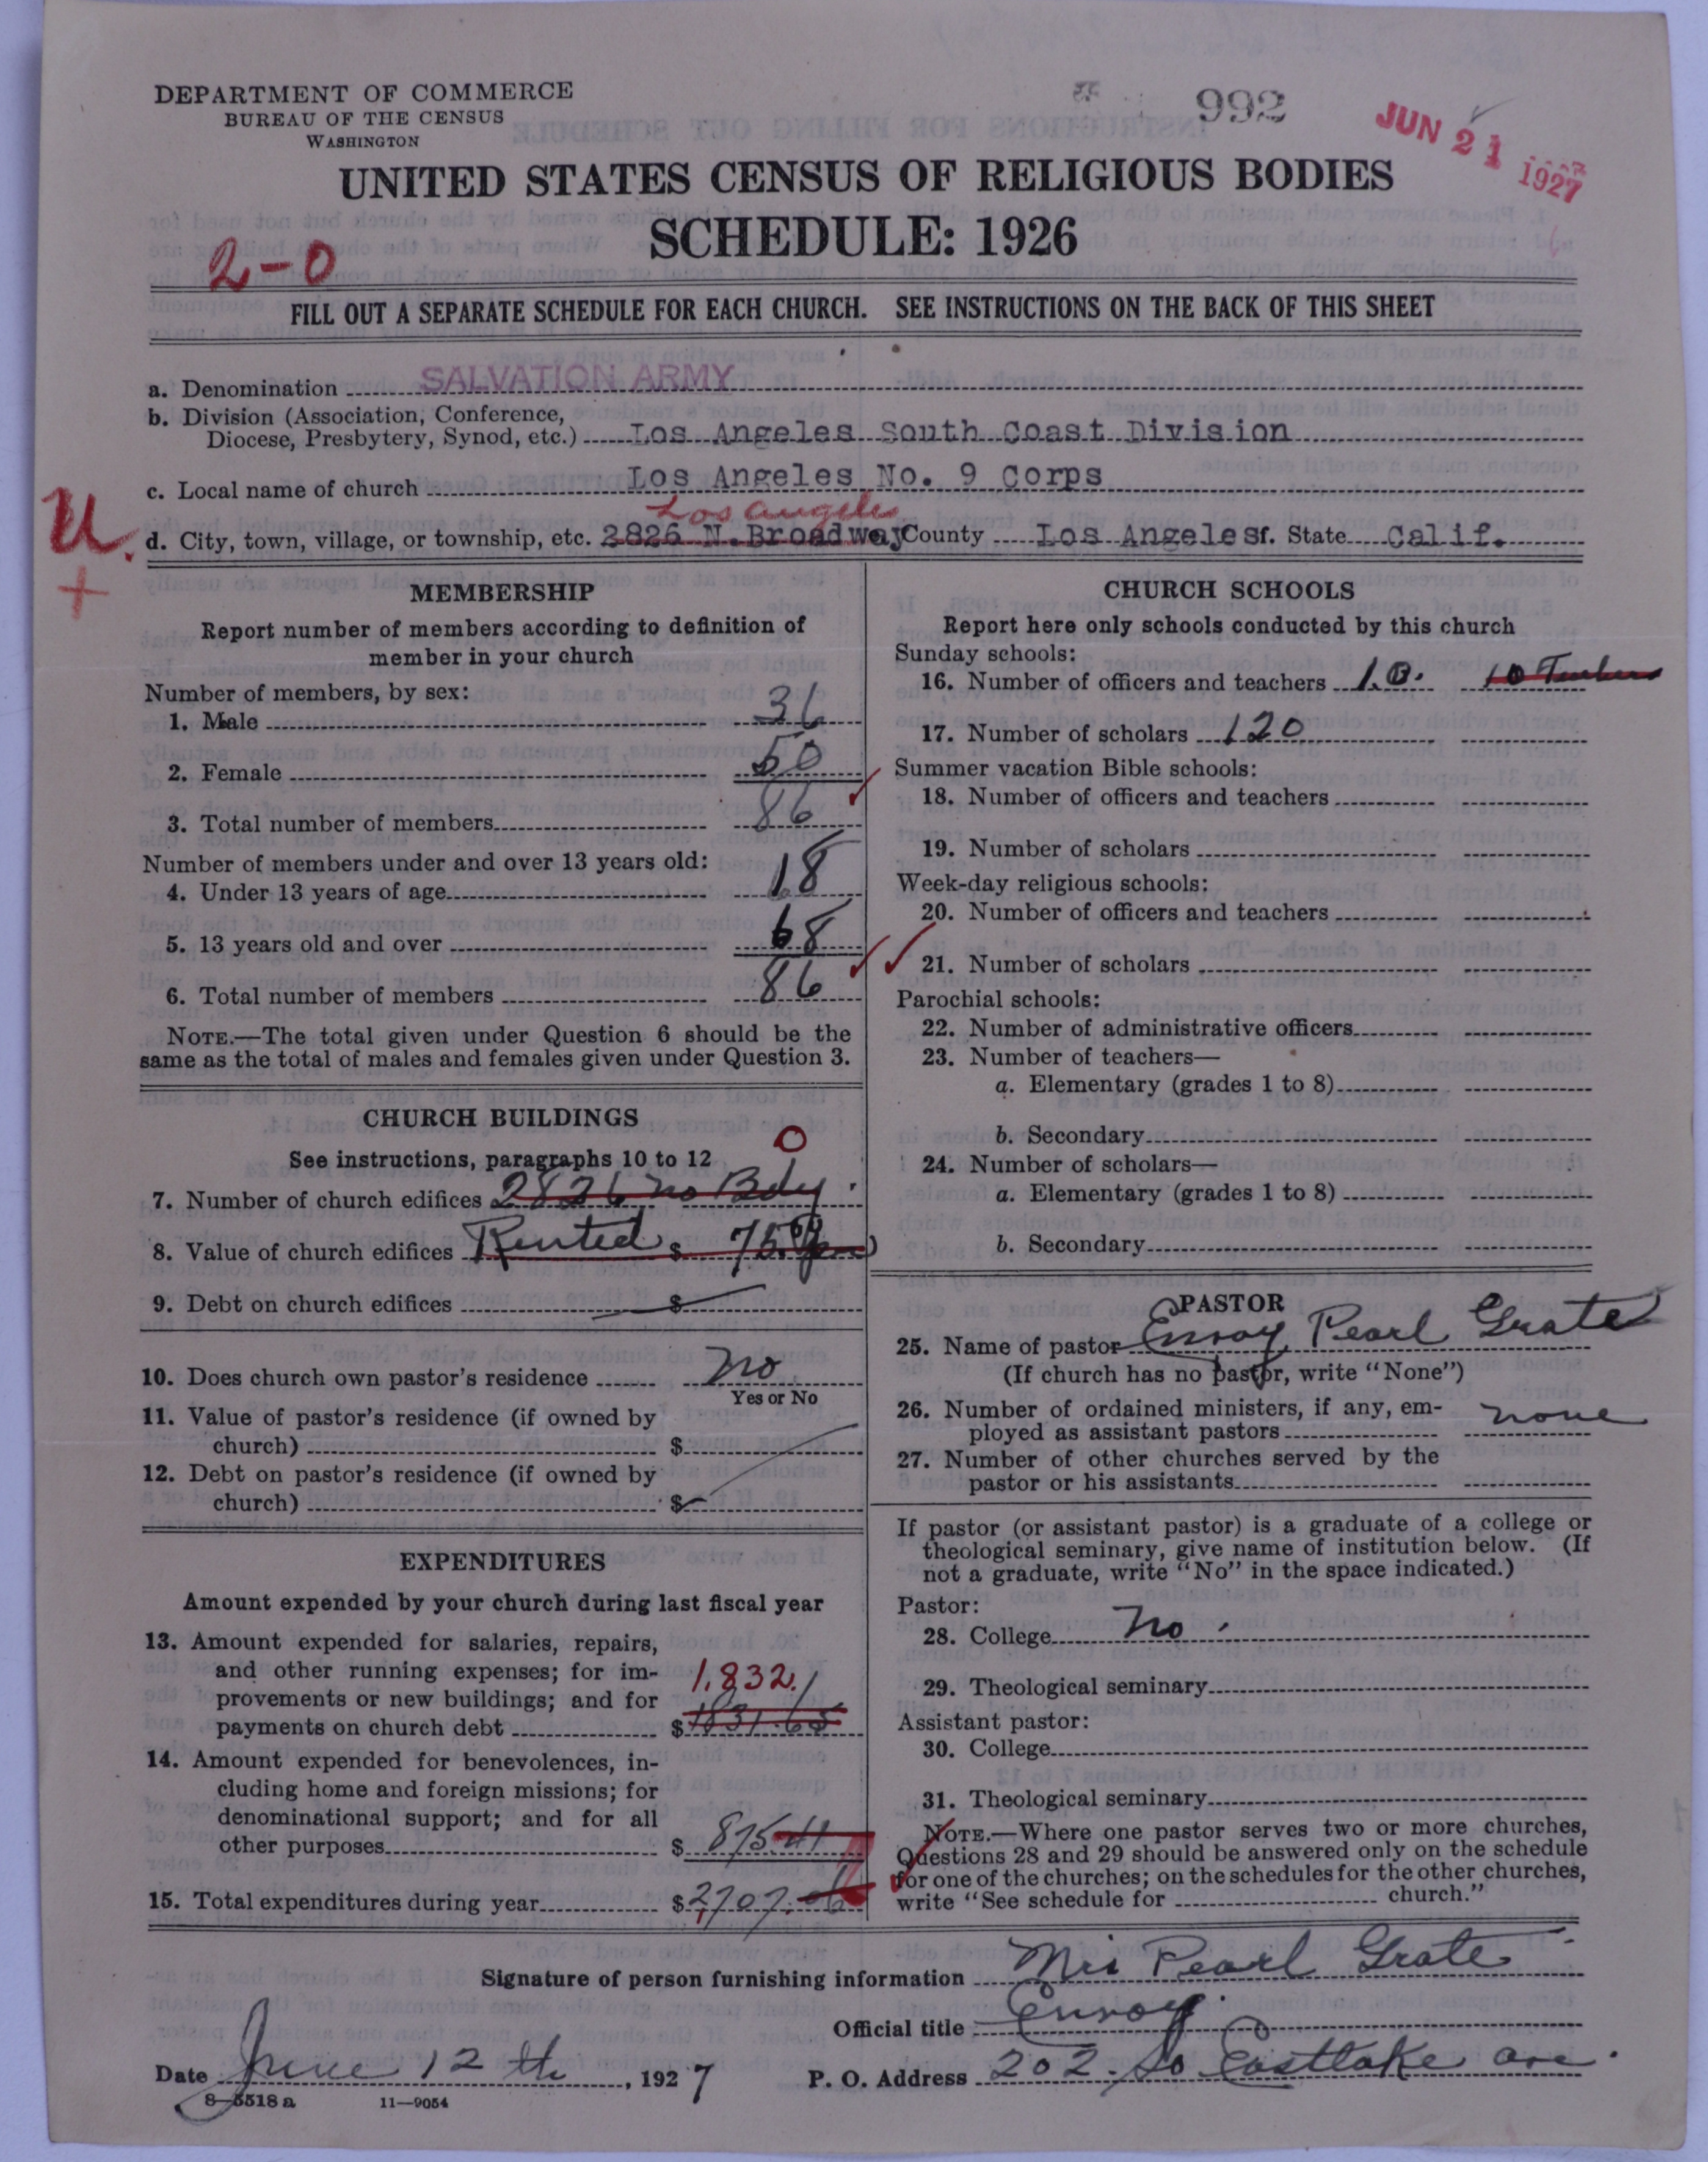 DEPARTMENT OF COMMERCE
BUREAU OF THE CENSUS
WASHINGTON
992
JUN 21 1927
UNITED STATES CENSUS OF RELIGIOUS BODIES
SCHEDULE: 1926
2-0
FILL OUT A SEPARATE SCHEDULE FOR EACH CHURCH. SEE INSTRUCTIONS ON THE BACK OF THIS SHEET
a. Denomination SALVATION ARMY
b. Division (Association, Conference,
Diocese, Presbytery, Synod, etc.) Los Angeles South Coast Division
c. Local name of church Los Angeles No. 9 Corps
Los Angeles
U.
d. City, town, village, or township, etc. 2826 N. Broadway County Los Angeles f. State Calif.
+
MEMBERSHIP
Report number of members according to definition of
member in your church
Number of members, by sex:
1. Male 36
2. Female 50
3. Total number of members 86
Number of members under and over 13 years old:
4. Under 13 years of age 18
5. 13 years old and over 68
6. Total number of members 86
NOTE.—The total given under Question 6 should be the
same as the total of males and females given under Question 3.
CHURCH BUILDINGS
See instructions, paragraphs 10 to 12
0
7. Number of church edifices 2826 no Bdy
8. Value of church edifices Rented $ 75.00
9. Debt on church edifices $
10. Does church own pastor's residence no
Yes or No
11. Value of pastor's residence (if owned by
church) $
12. Debt on pastor's residence (if owned by
church) $
EXPENDITURES
Amount expended by your church during last fiscal year
13. Amount expended for salaries, repairs,
and other running expenses; for im-
provements or new buildings; and for
1,832.
payments on church debt $ 1831.65
14. Amount expended for benevolences, in-
cluding home and foreign missions; for
denominational support; and for all
other purposes $ 875.41
15. Total expenditures during year $ 2707.06
CHURCH SCHOOLS
Report here only schools conducted by this church
Sunday schools:
16. Number of officers and teachers 10. 10 Teachers
17. Number of scholars 120
Summer vacation Bible schools:
18. Number of officers and teachers
19. Number of scholars
Week-day religious schools:
20. Number of officers and teachers
21. Number of scholars
Parochial schools:
22. Number of administrative officers
23. Number of teachers—
a. Elementary (grades 1 to 8)
b. Secondary
24. Number of scholars—
a. Elementary (grades 1 to 8)
b. Secondary
PASTOR
25. Name of pastor Envoy Pearl Grate
(If church has no pastor, write "None")
26. Number of ordained ministers, if any, em-
ployed as assistant pastors none
27. Number of other churches served by the
pastor or his assistants
If pastor (or assistant pastor) is a graduate of a college or
theological seminary, give name of institution below. (If
not a graduate, write "No" in the space indicated.)
Pastor:
28. College No.
29. Theological seminary
Assistant pastor:
30. College
31. Theological seminary
NOTE.—Where one pastor serves two or more churches,
Questions 28 and 29 should be answered only on the schedule
for one of the churches; on the schedules for the other churches,
write "See schedule for church."
Signature of person furnishing information Mrs Pearl Grate
Official title Envoy.
Date June 12 th, 1927 P. O. Address 202. So Eastlake ave.
8-5518 a 11-9054